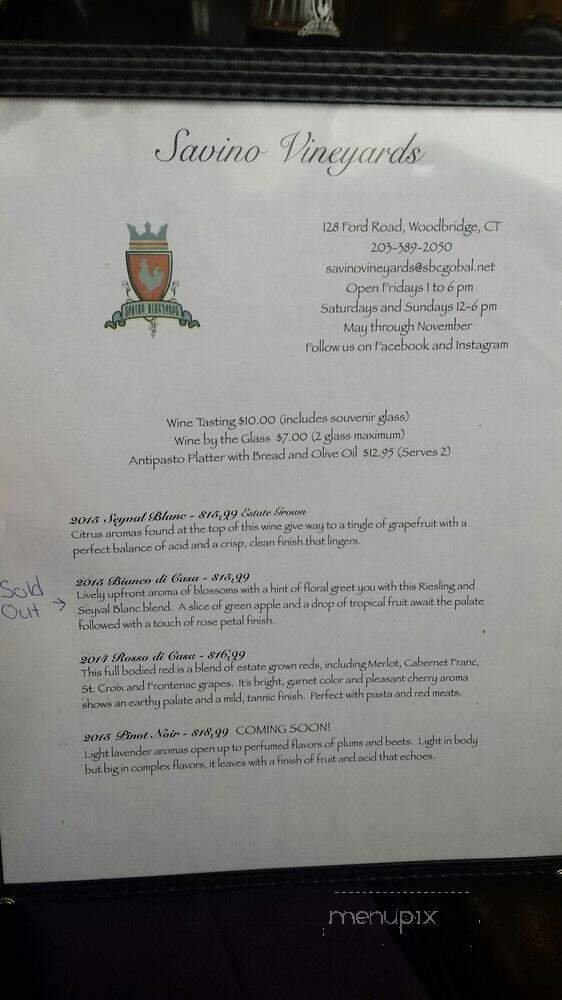 Savino Vineyards
SAVINO VINEYARDS
128 Ford Road, Woodbridge, CT
203-389-2050
savinovineyards@sbcgobal.net
Open Fridays 1 to 6 pm
Saturdays and Sundays 12-6 pm
May through November
Follow us on Facebook and Instagram
Wine Tasting $10.00 (includes souvenir glass)
Wine by the Glass $7.00 (2 glass maximum)
Antipasto Platter with Bread and Olive Oil $12.95 (Serves 2)
2015 Seyval Blanc - $15.99 Estate Grown
Citrus aromas found at the top of this wine give way to a tingle of grapefruit with a
perfect balance of acid and a crisp, clean finish that lingers.
Sold
Out →
2015 Bianco di Casa - $15.99
Lively upfront aroma of blossoms with a hint of floral greet you with this Riesling and
Seyval Blanc blend. A slice of green apple and a drop of tropical fruit await the palate
followed with a touch of rose petal finish.
2014 Rosso di Casa - $16.99
This full bodied red is a blend of estate grown reds, including Merlot, Cabernet Franc,
St. Croix and Frontenac grapes. It's bright, garnet color and pleasant cherry aroma
shows an earthy palate and a mild, tannic finish. Perfect with pasta and red meats.
2015 Pinot Noir - $18.99 COMING SOON!
Light lavender aromas open up to perfumed flavors of plums and beets. Light in body
but big in complex flavors, it leaves with a finish of fruit and acid that echoes.
menupix